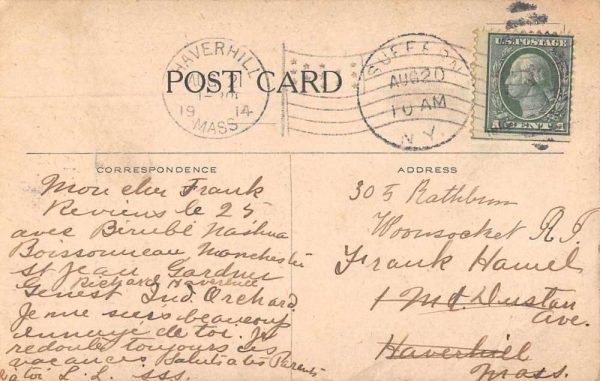 HAVERHILL
1914
MASS
SUFFERN
AUG 20
10 AM
N.Y.
U.S. POSTAGE
POST CARD
CORRESPONDENCE
Mon cher Frank
Reviens le 25
avec Bérubé Nashua
Boissonneau Manchester
St Jean Gardner
Richard Haverhill
Genest Ind. Orchard
Je me suis beaucoup
ennuyé de toi. Je
redoute toujours les
vacances. Salutations Parents
à toi L.L. sss.
ADDRESS
305 Rathbun
Woonsocket R.I.
Frank Hamel
1 Mt. Dustan
Ave.
Haverhill
Mass.